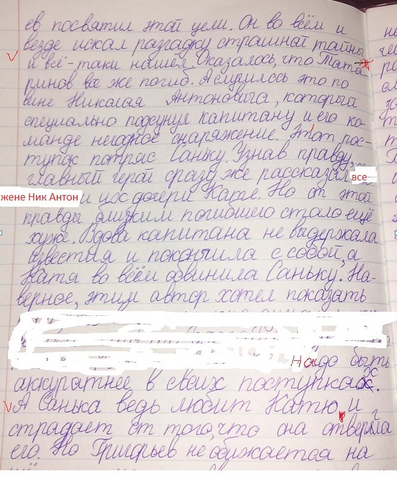 ев посвятил этой цели. Он во всём и
везде искал разгадку страшной тайны
и всё-таки нашёл. Оказалось, что Тата-
ринов все же погиб. А случилось это по
вине Николая Антоновича, который
специально подсунул капитану и его ко-
манде негодное снаряжение. Этот пос-
тупок потряс Саньку. Узнав правду,
главный герой сразу же рассказал все
жене Ник Антон и его дочери Кате. Но от этой
правды близким погибшего стало ещё
хуже. Вдова капитана не выдержала
известия и покончила с собой, а
Катя во всём обвинила Саньку. На-
верное, этим автор хотел показать
Надо быть
аккуратнее в своих поступках.
А Санька ведь любит Катю и
страдает от того, что она отвергла
его. Но Григорьев не обижается на